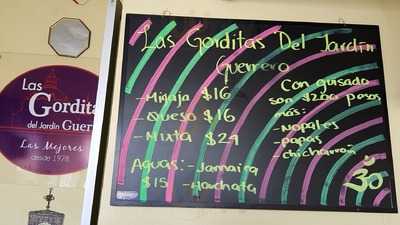 Las Gorditas Del Jardín
Guerrero
- Migaja $16
- Queso $16
- Mixta $24
Aguas: - Jamaica
$15 - Horchata
Con guisado
son $2.00 pesos
más:
- Nopales
- papas
- chicharrón
Las
Gordita
del Jardín Guer
Las Mejores
desde 1978